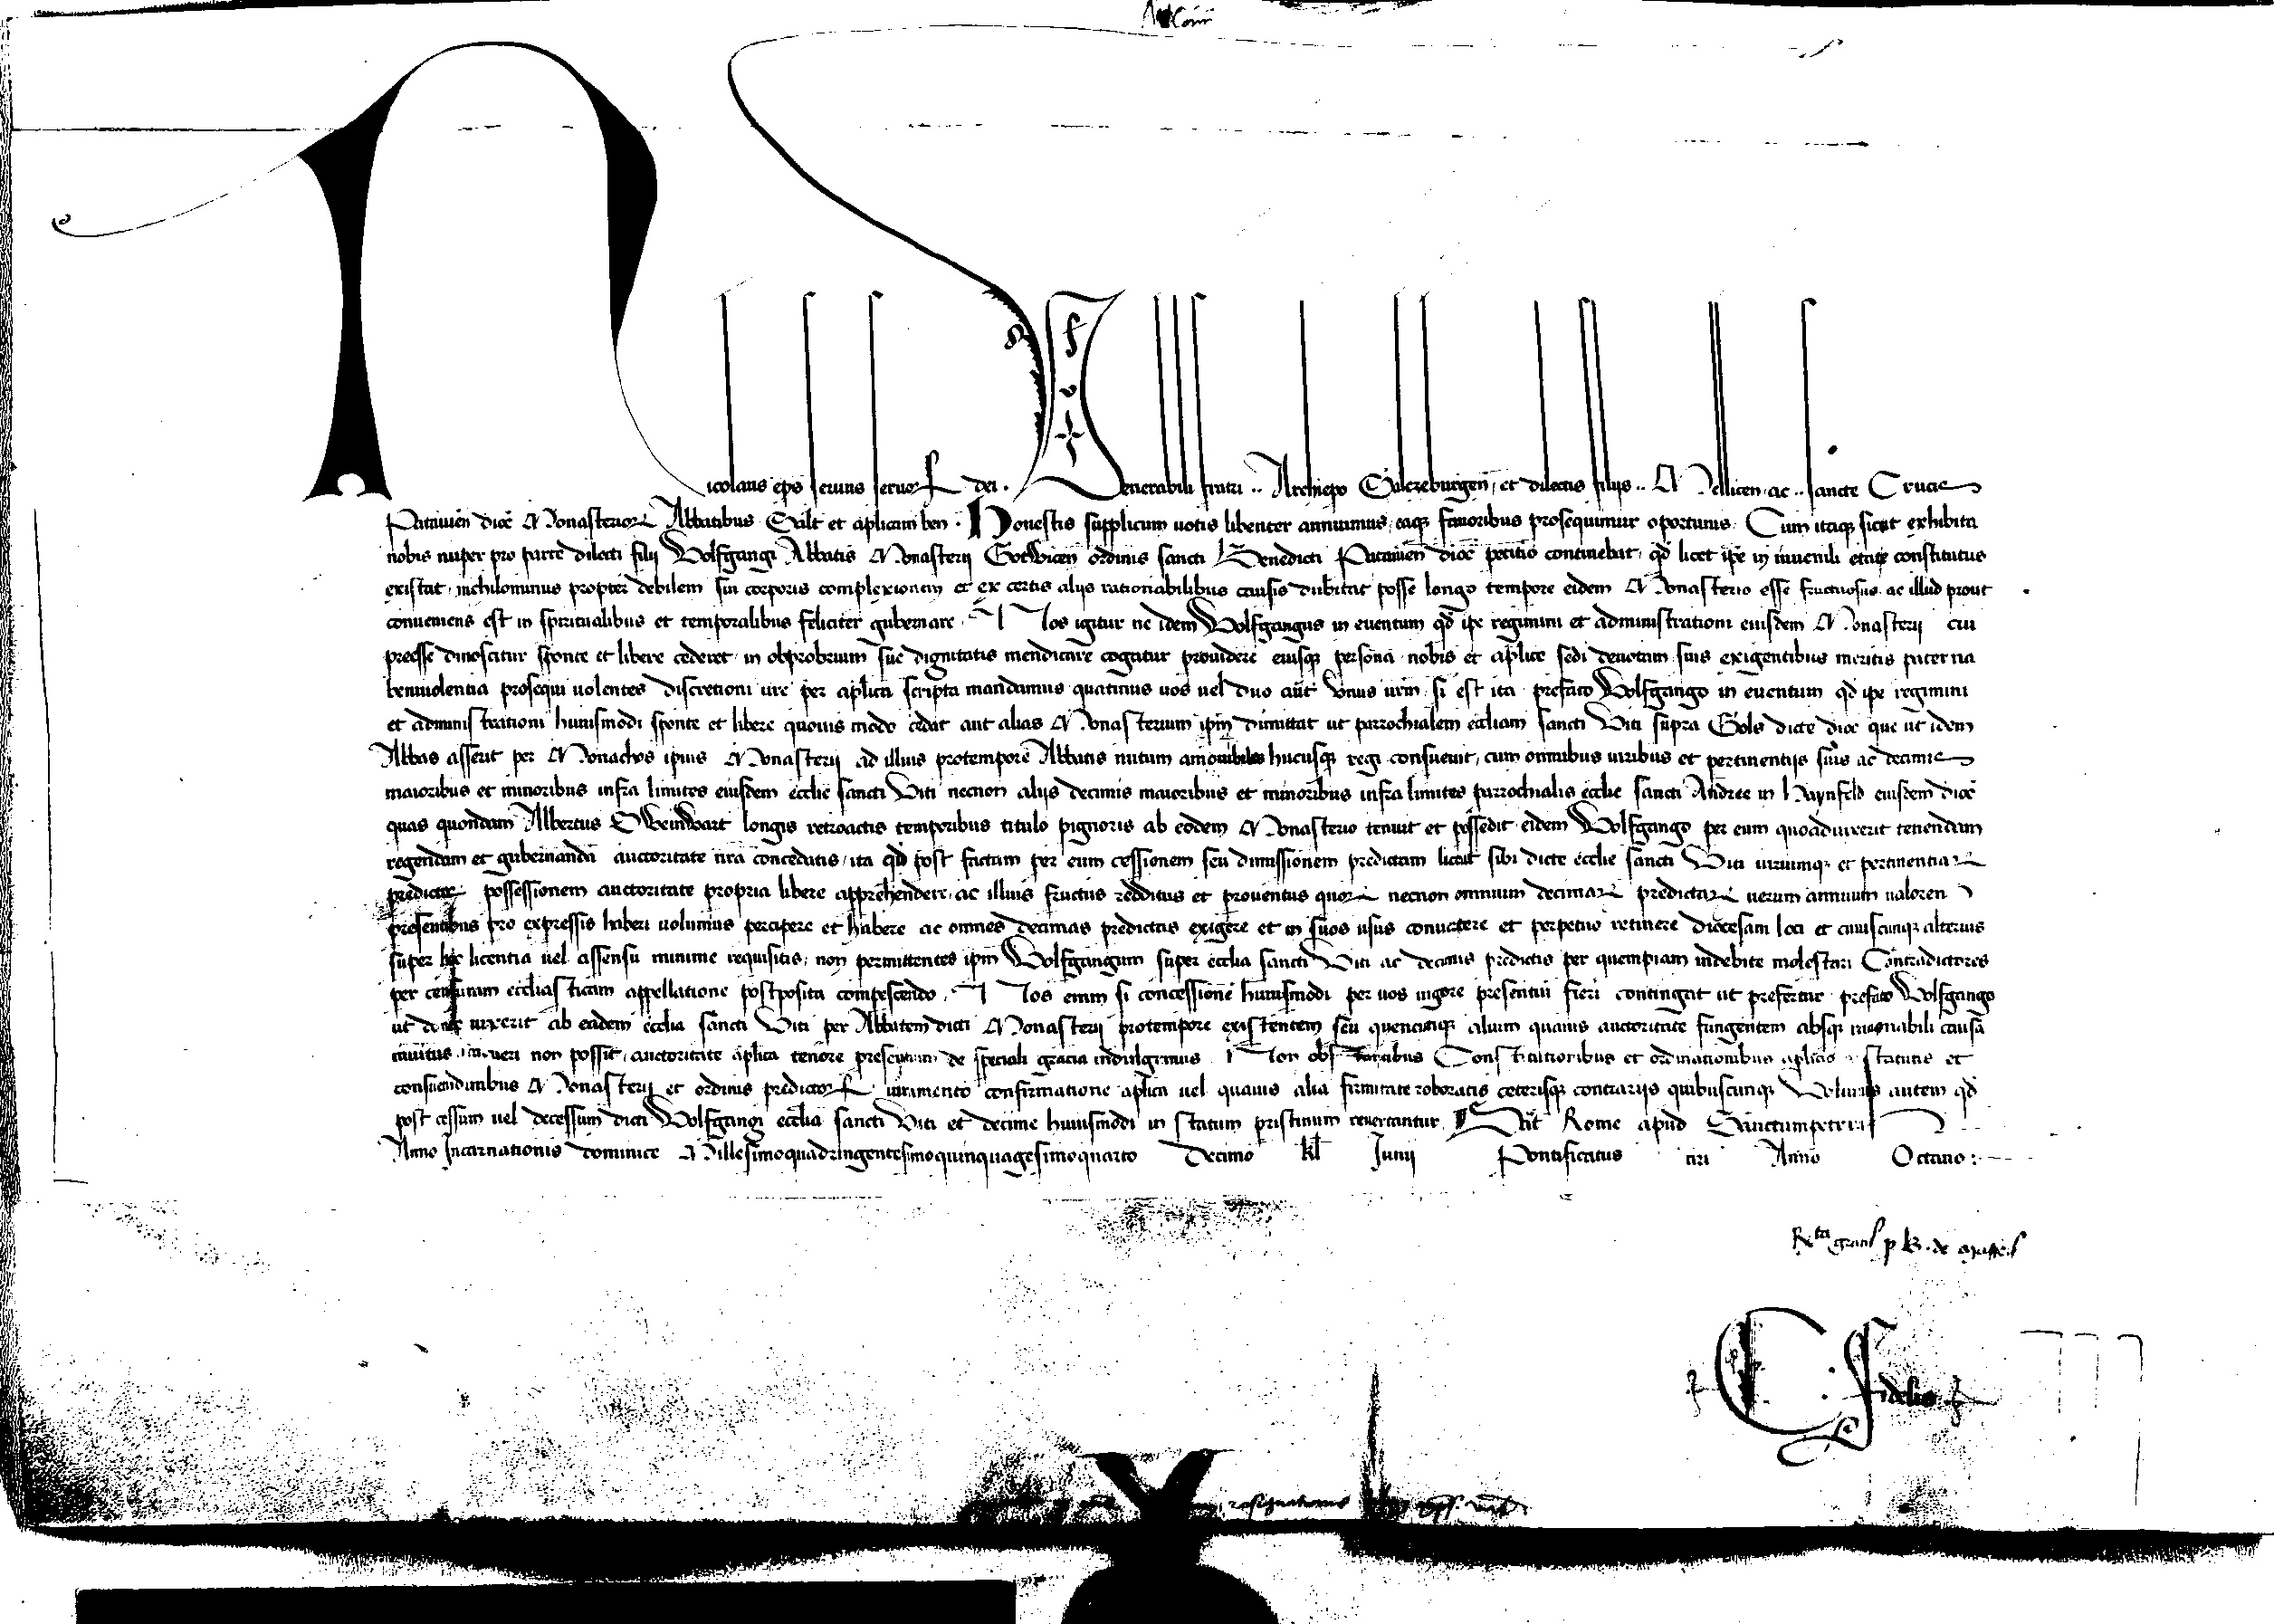 Nicolaus ep̄s seruus seruoꝝ dei. Venerabili fratri .. Archiep̄o Salczeburgeñ, et dilectis filijs .. Mellicen̄ ac .. sancte Crucis
Patauieñ dioc̄ Monasterioꝝ Abbatibus Salt̄ et ap̄licam ben̄. Honestis supplicum uotis libenter annuimus, eaqꝫ fauoribus prosequimur oportunis. Cum itaqꝫ sicut exhibita
nobis nuper pro parte dilecti filij Wolfgangi Abbatis Monasterij Gotwiceñ ordinis sancti Benedicti Patauieñ dioc̄ petitio continebat, qd̄ licet ip̄e in iuuenili etate constitutus
existat, nichilominus propter debilem sui corporis complexionem et ex certis alijs rationabilibus causis dubitat posse longo tempore eidem Monasterio esse fructuosus, ac illud prout
conueniens est in spiritualibus et temporalibus feliciter gubernare. Nos igitur ne idem Wolfgangus in euentum qd̄ ip̄e regimini et administrationi eiusdem Monasterij cui
preesse dinoscitur sponte et libere cederet, in obprobrium sue dignitatis mendicare cogatur prouidere eiusqꝫ personā nobis et ap̄lice sedi deuotam suis exigentibus meritis paterna
beniuolentia prosequi uolentes discretioni ur̄e per ap̄lica scripta mandamus quatinus uos uel duo aut unus ur̄m si est ita prefato Wolfgango in euentum qd̄ ip̄e regimini
et administrationi huiusmodi sponte et libere quouis modo cedat aut alias Monasterium ip̄m dimittat ut parrochialem eccl̄iam sancti Viti supra Gols dicte dioc̄ que ut idem
Abbas asserit per Monachos ip̄ius Monasterij ad illius protempore Abbatis nutum amouibiles hucusqꝫ regi consueuit, cum omnibus iuribus et pertinentijs suis ac decimis
maioribus et minoribus infra limites eiusdem eccl̄ie sancti Viti necnon alijs decimis maioribus et minoribus infra limites parrochialis eccl̄ie sancti Andree in Haynfeld eiusdem dioc̄
quas quondam Albertus longis retroactis temporibus titulo pignoris ab eodem Monasterio tenuit et possedit eidem Wolfgango per eum quoaduixerit tenendam
regendam et gubernandā auctoritate nr̄a concedatis, ita qd̄ post factam per eum cessionem seu dimissionem predictam liceat sibi dicte eccl̄ie sancti Viti iuriumqꝫ et pertinentiaꝝ
predictaꝝ possessionem auctoritate propria libere apprehendere, ac illius fructus redditus et prouentus quoꝝ necnon omnium decimaꝝ predictaꝝ uerum annuum ualorem
presentibus pro expressis haberi uolumus percipere et habere ac omnes decimas predictas exigere et in suos usus conuertere et perpetuo retinere diocesani loci et cuiuscunqꝫ alterius
super hoc licentia uel assensu minime requisitis, non permittentes ip̄m Wolfgangum super eccl̄ia sancti Viti ac decimis predictis per quempiam indebite molestari Contradictores
per censuram eccl̄iasticam appellatione postposita compescendo. Nos enim si concessionē huiusmodi per uos uigore presentiū fieri contingat ut prefertur prefato Wolfgango
ut donec uixerit ab eadem eccl̄ia sancti Viti per Abbatem dicti Monasterij protempore existentem seu quencunqꝫ alium quauis auctoritate fungentem absqꝫ rationabili causa
inuitus amoueri non possit, auctoritate ap̄lica tenore presentium de speciali gracia indulgemus. Non obstantibus Constitutionibus et ordinationibus ap̄licis ac statutis et
consuetudinibus Monasterij et ordinis predictoꝝ iuramento confirmatione ap̄lica uel quauis alia firmitate roboratis ceterisqꝫ contrarijs quibuscunqꝫ Volumus autem qd̄
post cessum uel decessum dicti Wolfgangi eccl̄ia sancti Viti et decime huiusmodi in statum pristinum reuertantur. Dat̄ Rome apud Sanctumpetrum
Anno Incarnationis dominice Millesimoquadringentesimoquinquagesimoquarto Decimo kl̄ Junij Pontificatus nr̄i Anno Octauo:
Rta gratis p B. de Maffeis
C: Fidelis
resignationis